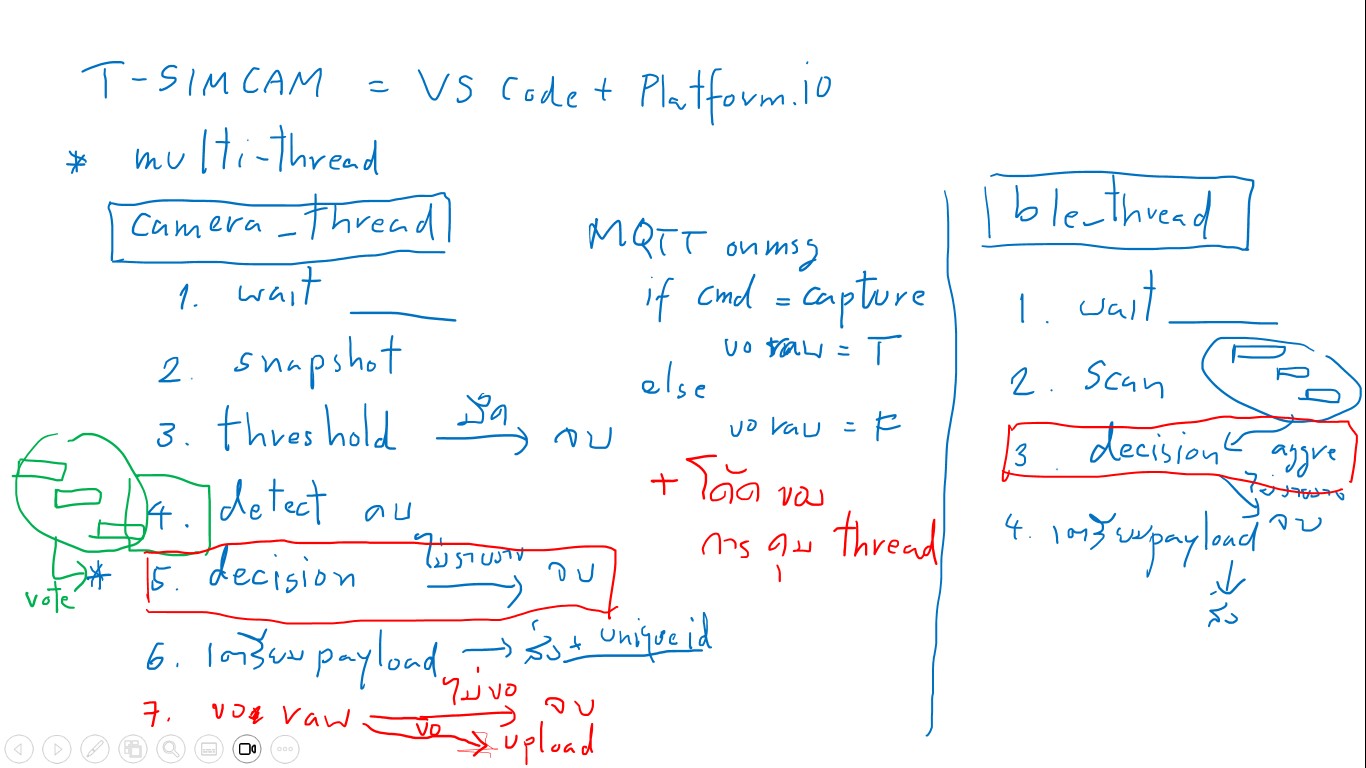 T-SIMCAM = VS Code + Platform.io
* multi-thread
camera_thread
1. wait ____
2. snapshot
3. threshold มืด → จบ
4. detect คน
vote
* 5. decision ไม่รายงาน → จบ
6. เตรียม payload → ส่ง + unique id
7. ขอ raw ไม่ขอ → จบ
ขอ → upload
MQTT onmsg
if cmd = capture
ขอ raw = T
else
ขอ raw = F
+ โค้ด ของ
การ คุม thread
ble_thread
1. wait ____
2. Scan
3. decision ← aggre
ไม่รายงาน → จบ
4. เตรียม payload
↓
ส่ง